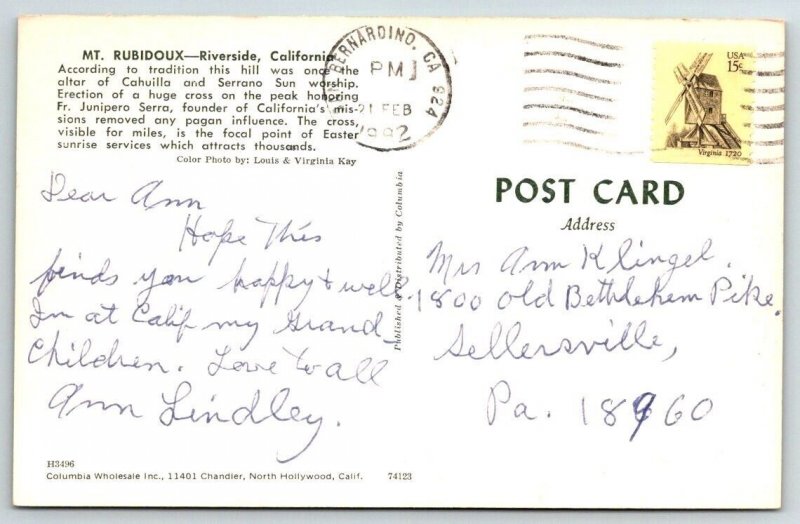 MT. RUBIDOUX—Riverside, California
According to tradition this hill was once the
altar of Cahuilla and Serrano Sun worship.
Erection of a huge cross on the peak honoring
Fr. Junipero Serra, founder of California's mis-
sions removed any pagan influence. The cross,
visible for miles, is the focal point of Easter
sunrise services which attracts thousands.
Color Photo by: Louis & Virginia Kay
BERNARDINO, CA 924
PM
21 FEB
USA
15c
Virginia 1720
Dear Ann
Hope This
finds you happy & well.
Im at Calif my Grand-
Children. Love to all
Ann Lindley.
Published & Distributed by Columbia
POST CARD
Address
Mrs Ann Klingel.
1800 Old Bethlehem Pike.
Sellersville,
Pa. 18960
H3496
Columbia Wholesale Inc., 11401 Chandler, North Hollywood, Calif. 74123